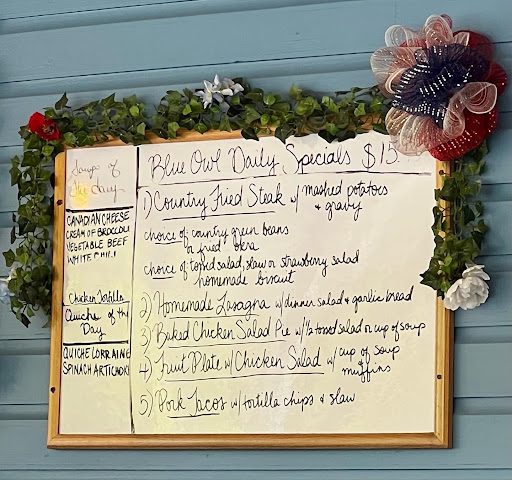 Soups of
the day
CANADIAN CHEESE
CREAM OF BROCCOLI
VEGETABLE BEEF
WHITE CHILI
Chicken Tortilla
Quiche of the
Day
QUICHE LORRAINE
SPINACH ARTICHOKE
Blue Owl Daily Specials $15.
1) Country Fried Steak w/ mashed potatoes
& gravy
choice of country green beans
or fried okra
choice of tossed salad, slaw or strawberry salad
homemade biscuit
2) Homemade Lasagna w/ dinner salad & garlic bread
3) Baked Chicken Salad Pie w/ 1/2 tossed salad or cup of soup
4) Fruit Plate w/ Chicken Salad w/ cup of soup
muffins
5) Pork Tacos w/ tortilla chips & slaw